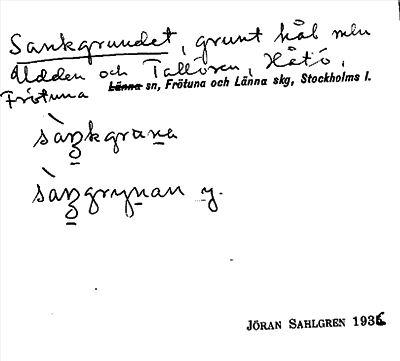 Sankgrundet, grunt hål mln
Udden och Tallören, Håtö,
Frötuna Länna sn, Frötuna och Länna skg, Stockholms l.
sàŋkgruna
sàŋgrynan y.
JÖRAN SAHLGREN 1936